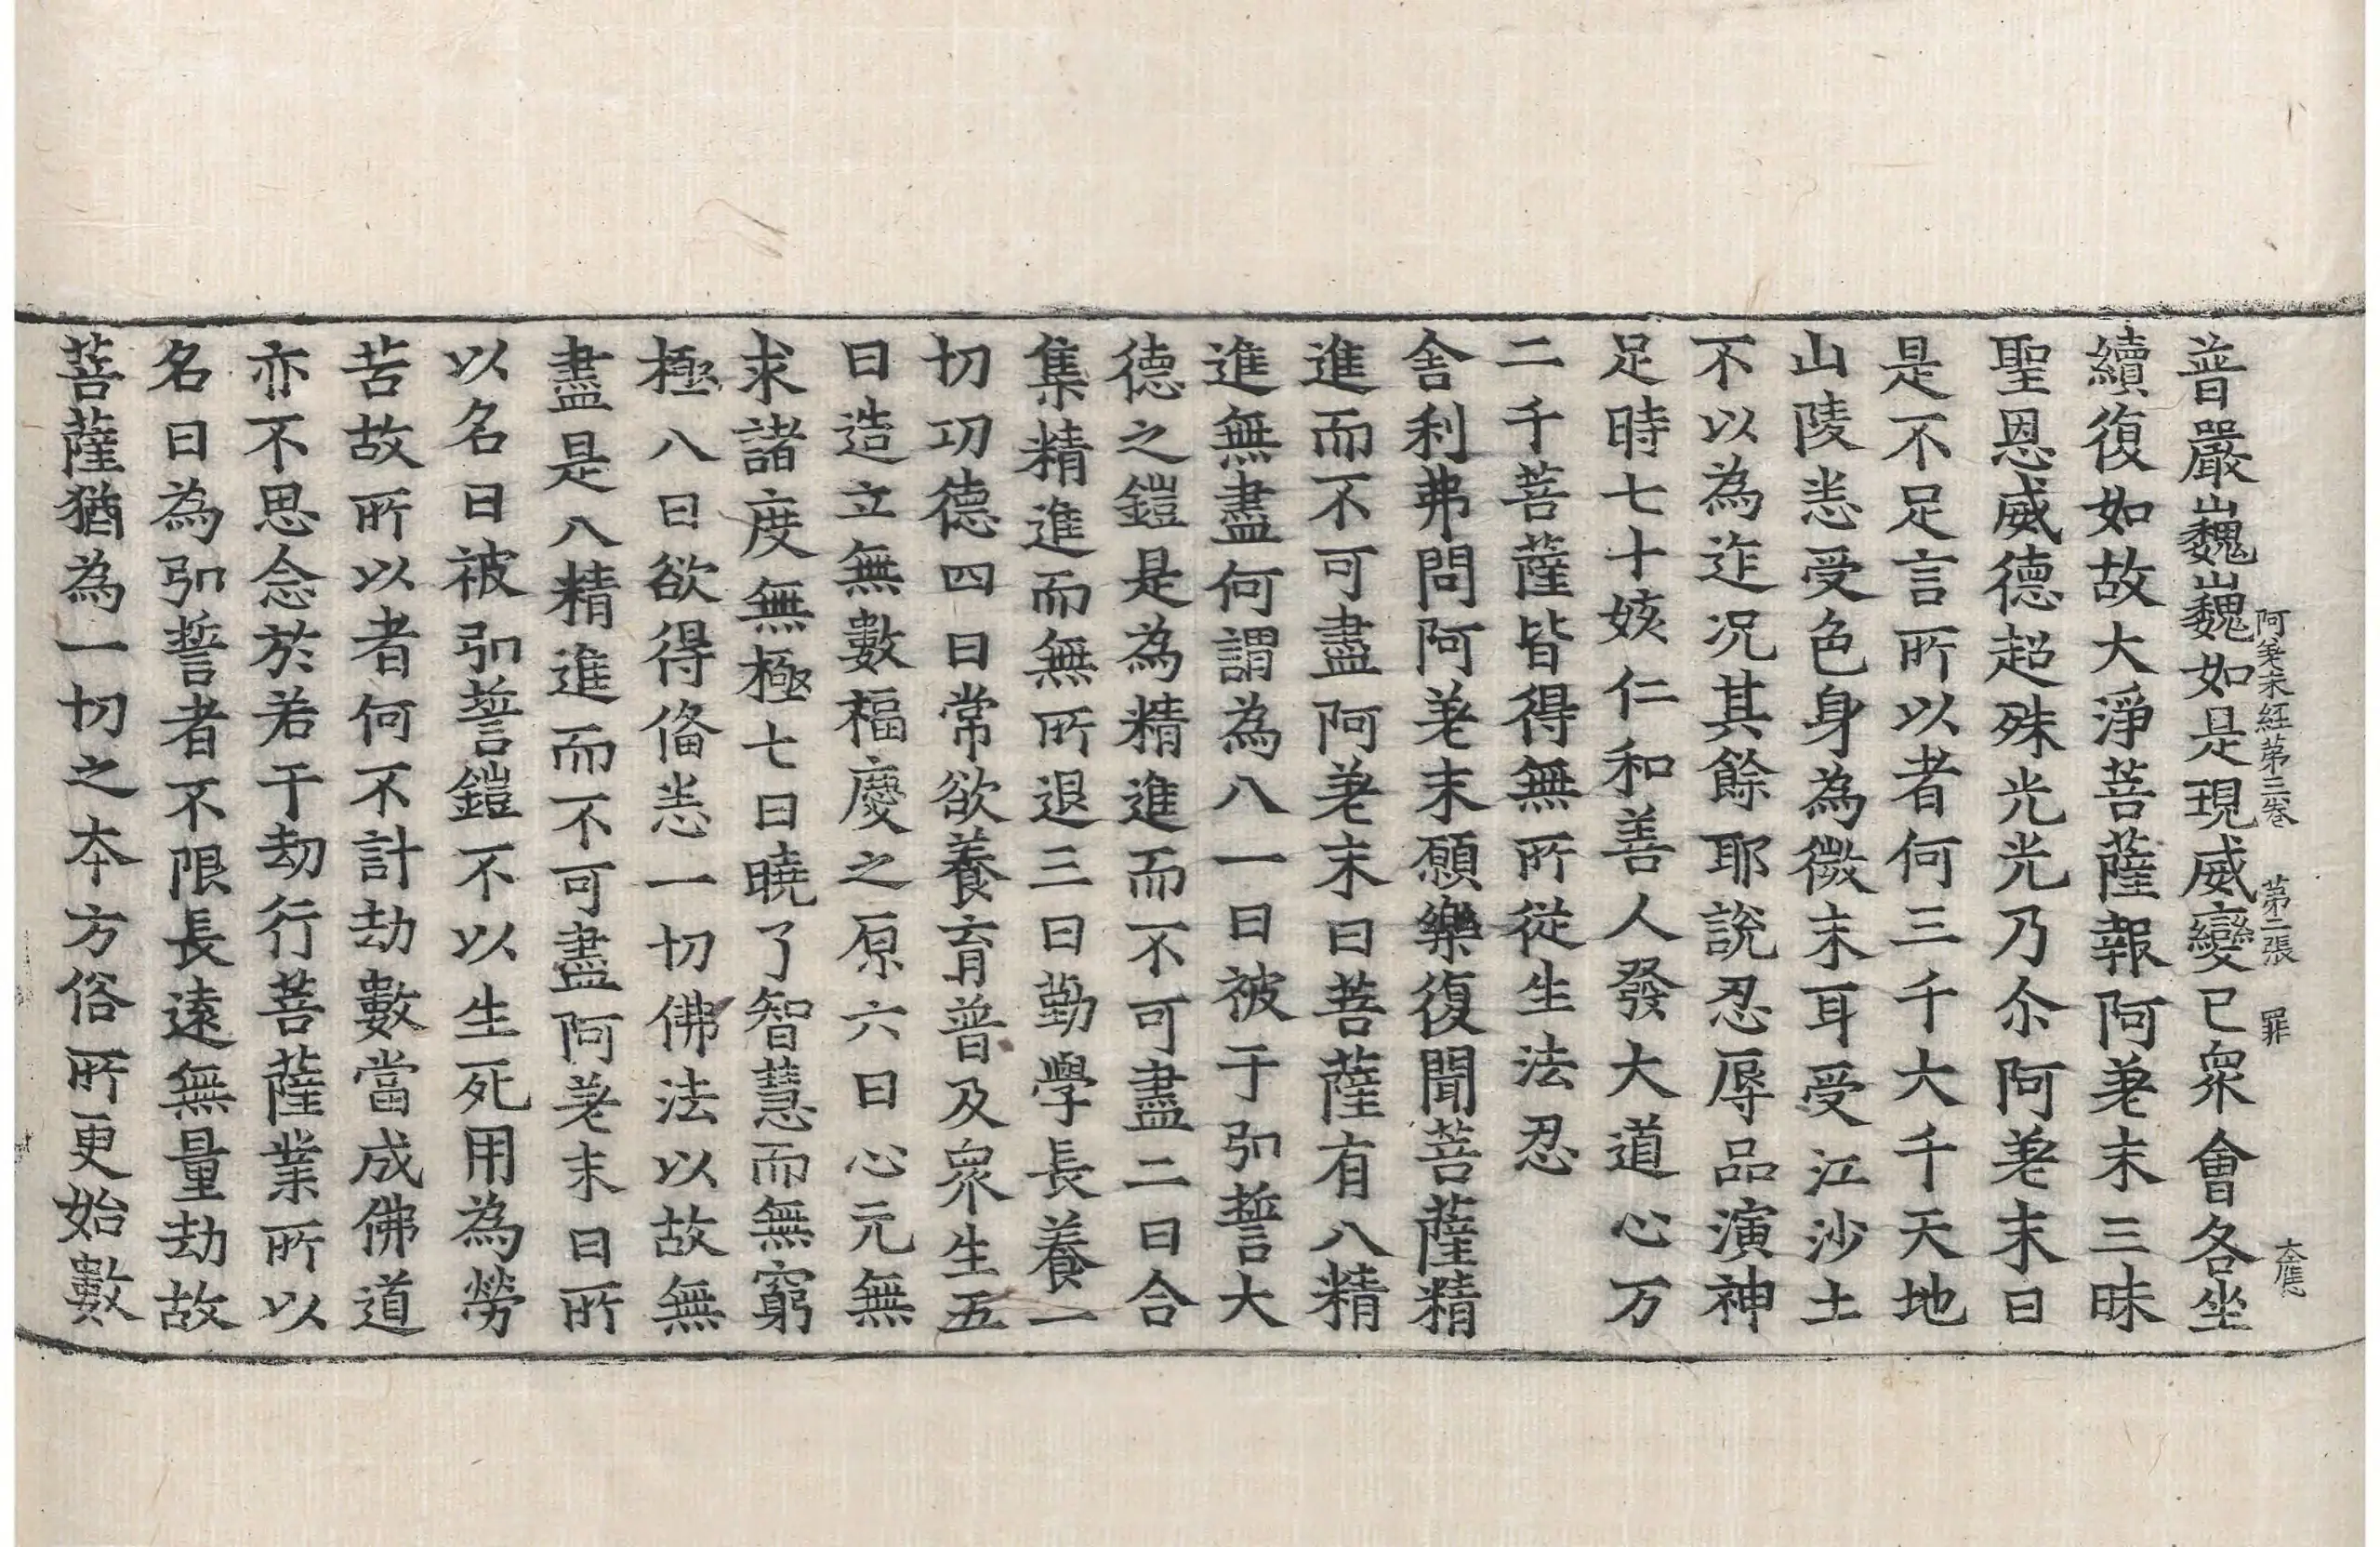 阿差末経第三巻　第二張　罪　大應
普嚴巍巍如是現威變已衆會各坐
續復如故大淨菩薩報阿差末三昧
聖恩威德超殊光光乃尒阿差末曰
是不足言所以者何三千大千天地
山陵悉受色身為微末耳受江沙土
不以為迮况其餘耶說忍辱品演神
足時七十姟仁和善人發大道心万
二千菩薩皆得無所從生法忍
舍利弗問阿差末願樂復聞菩薩精
進而不可盡阿差末曰菩薩有八精
進無盡何謂為八一曰被于弘誓大
德之鎧是為精進而不可盡二曰合
集精進而無所退三曰勤學長養一
切功德四曰常欲養育普及衆生五
曰造立無數福慶之原六曰心元無
求諸度無極七曰曉了智慧而無窮
極八曰欲得俻悉一切佛法以故無
盡是八精進而不可盡阿差末曰所
以名曰被弘誓鎧不以生死用為勞
苦故所以者何不計劫數當成佛道
亦不思念於若干劫行菩薩業所以
名曰為弘誓者不限長遠無量劫故
菩薩猶為一切之本方俗所更始數